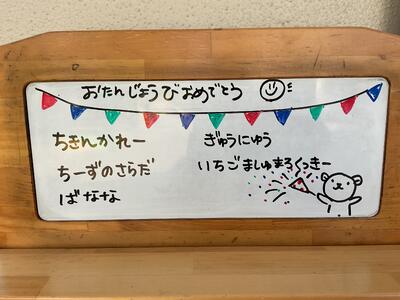 おたんじょうびおめでとう
ちきんかれー
ちーずのさらだ
ばなな
ぎゅうにゅう
いちごましゅまろくっきー